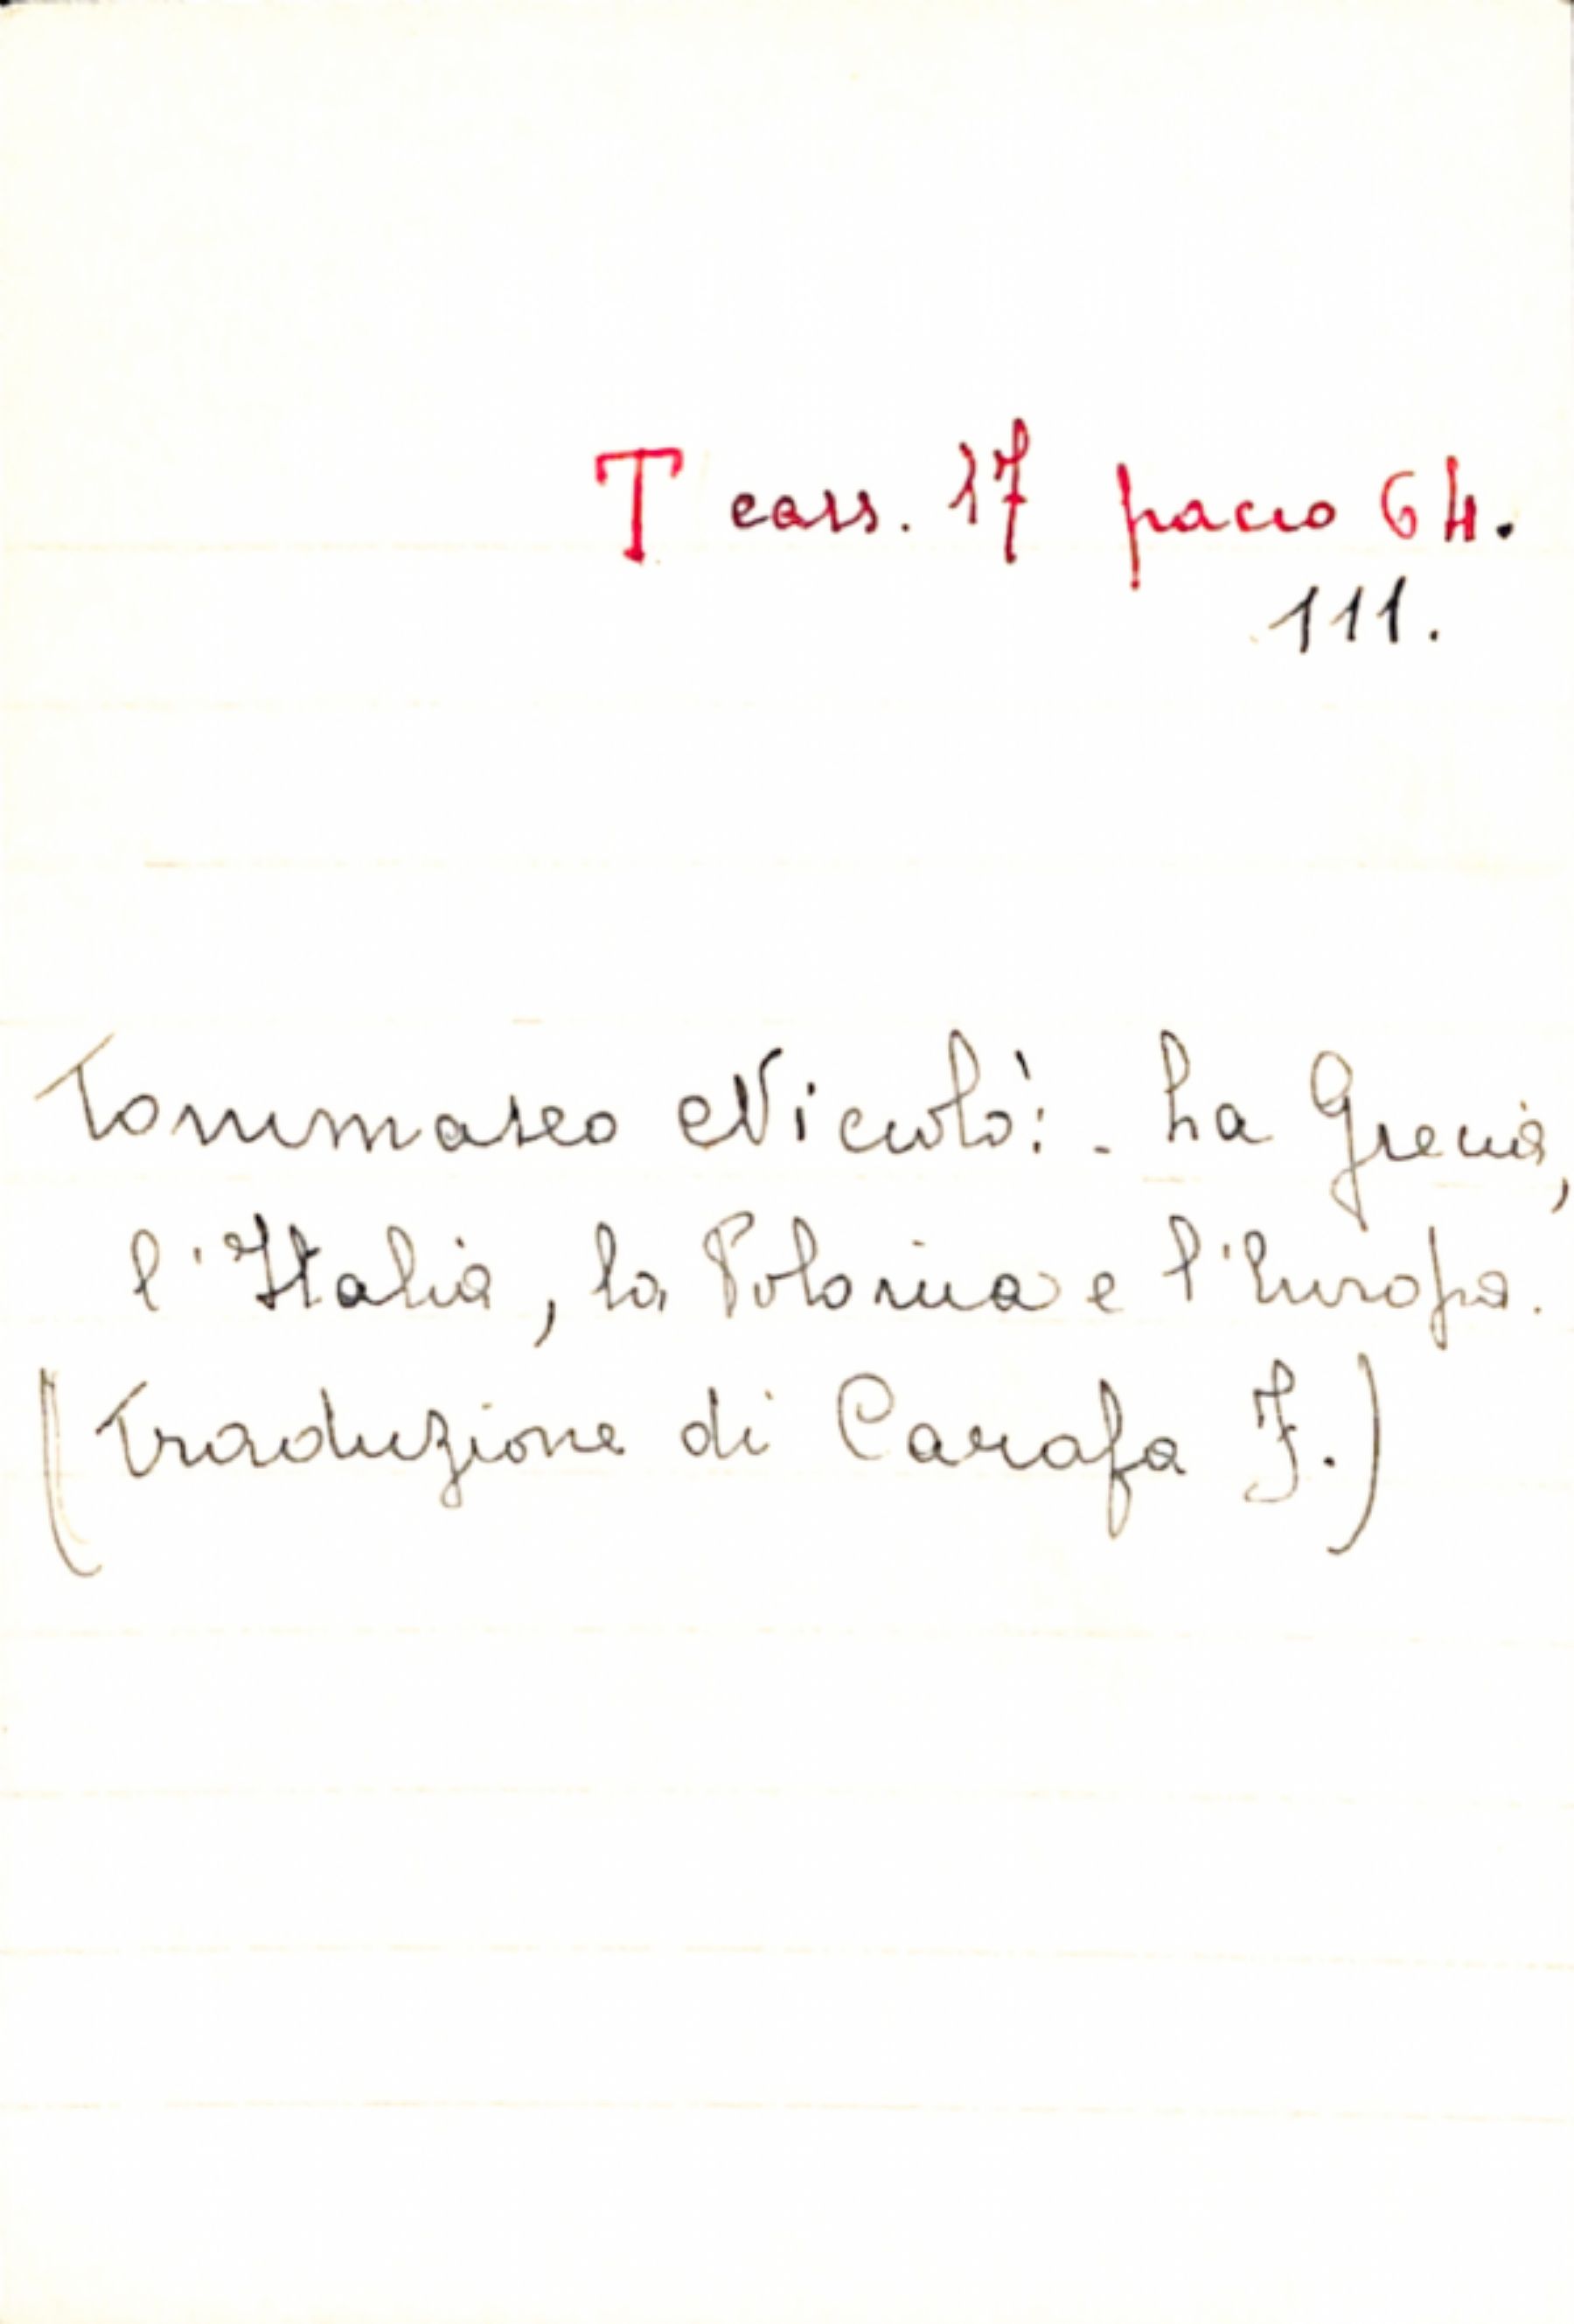 T cass. 17 pacco 64.
111.
Tommaseo Niccolò: - La Grecia,
l'Italia, la Polonia e l'Europa.
(Traduzione di Carafa J.)